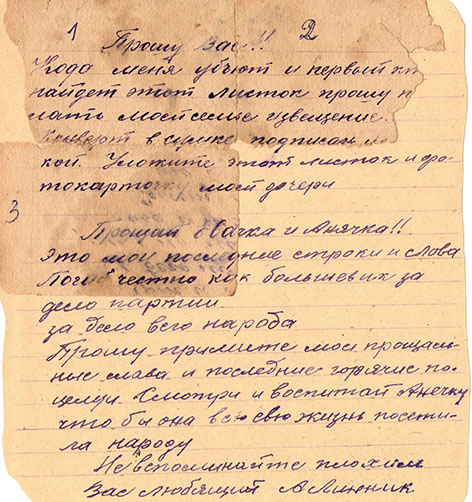 1 2
Прошу Вас!!
Кода меня убьют и первый кт
найдет этот листок прошу п
лать моей семье извещение.
Конверт в сумке подписан
кой. Уложите этот листок и фо-
токарточку моей дочери
3
Прощай и Анячка!!
Это мои последние строки и слова
Погиб честно как большевик за
дело партии
за дело всего народа
Прошу примите мои прощаль-
ные слова и последние горячие по-
целуи. Смотри и воспитай Анечку
что бы она всю свою жизнь посвяти-
ла народу
Не вспоминайте плохим
Вас любящий А Линник